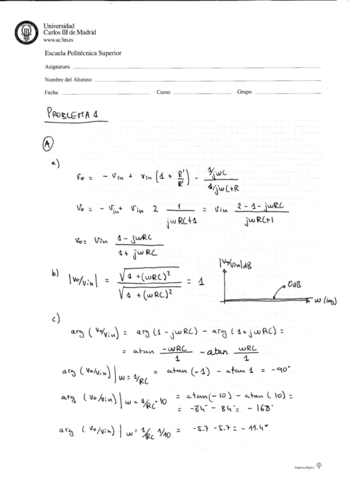 Universidad
Carlos III de Madrid
www.uc3m.es
Escuela Politécnica Superior
Asignatura
Nombre del Alumno
Fecha Curso Grupo
PROBLEMA 1
A
a)
Vo = - Vin + Vin (1 + R'/R') · (1/jωC)/(1/jωC+R)
Vo = - Vin + Vin 2 1/(jωRC+1) = Vin (2-1-jωRC)/(jωRC+1)
Vo = Vin (1-jωRC)/(1+jωRC)
b) |Vo/Vin| = √(1+(ωRC)²)/√(1+(ωRC)²) = 1 |Vo/Vin|dB 0dB ω (log)
c)
arg (Vo/Vin) = arg (1-jωRC) - arg (1+jωRC) =
= atan (-ωRC)/1 - atan ωRC/1
arg (Vo/Vin)| ω=1/RC = atan (-1) - atan 1 = -90°
arg (Vo/Vin)| ω=1/RC·10 = atan(-10) - atan(10) =
= -84° - 84° = -168°
arg (Vo/Vin)| ω=1/RC 1/10 = -5.7 - 5.7 = -11.4°